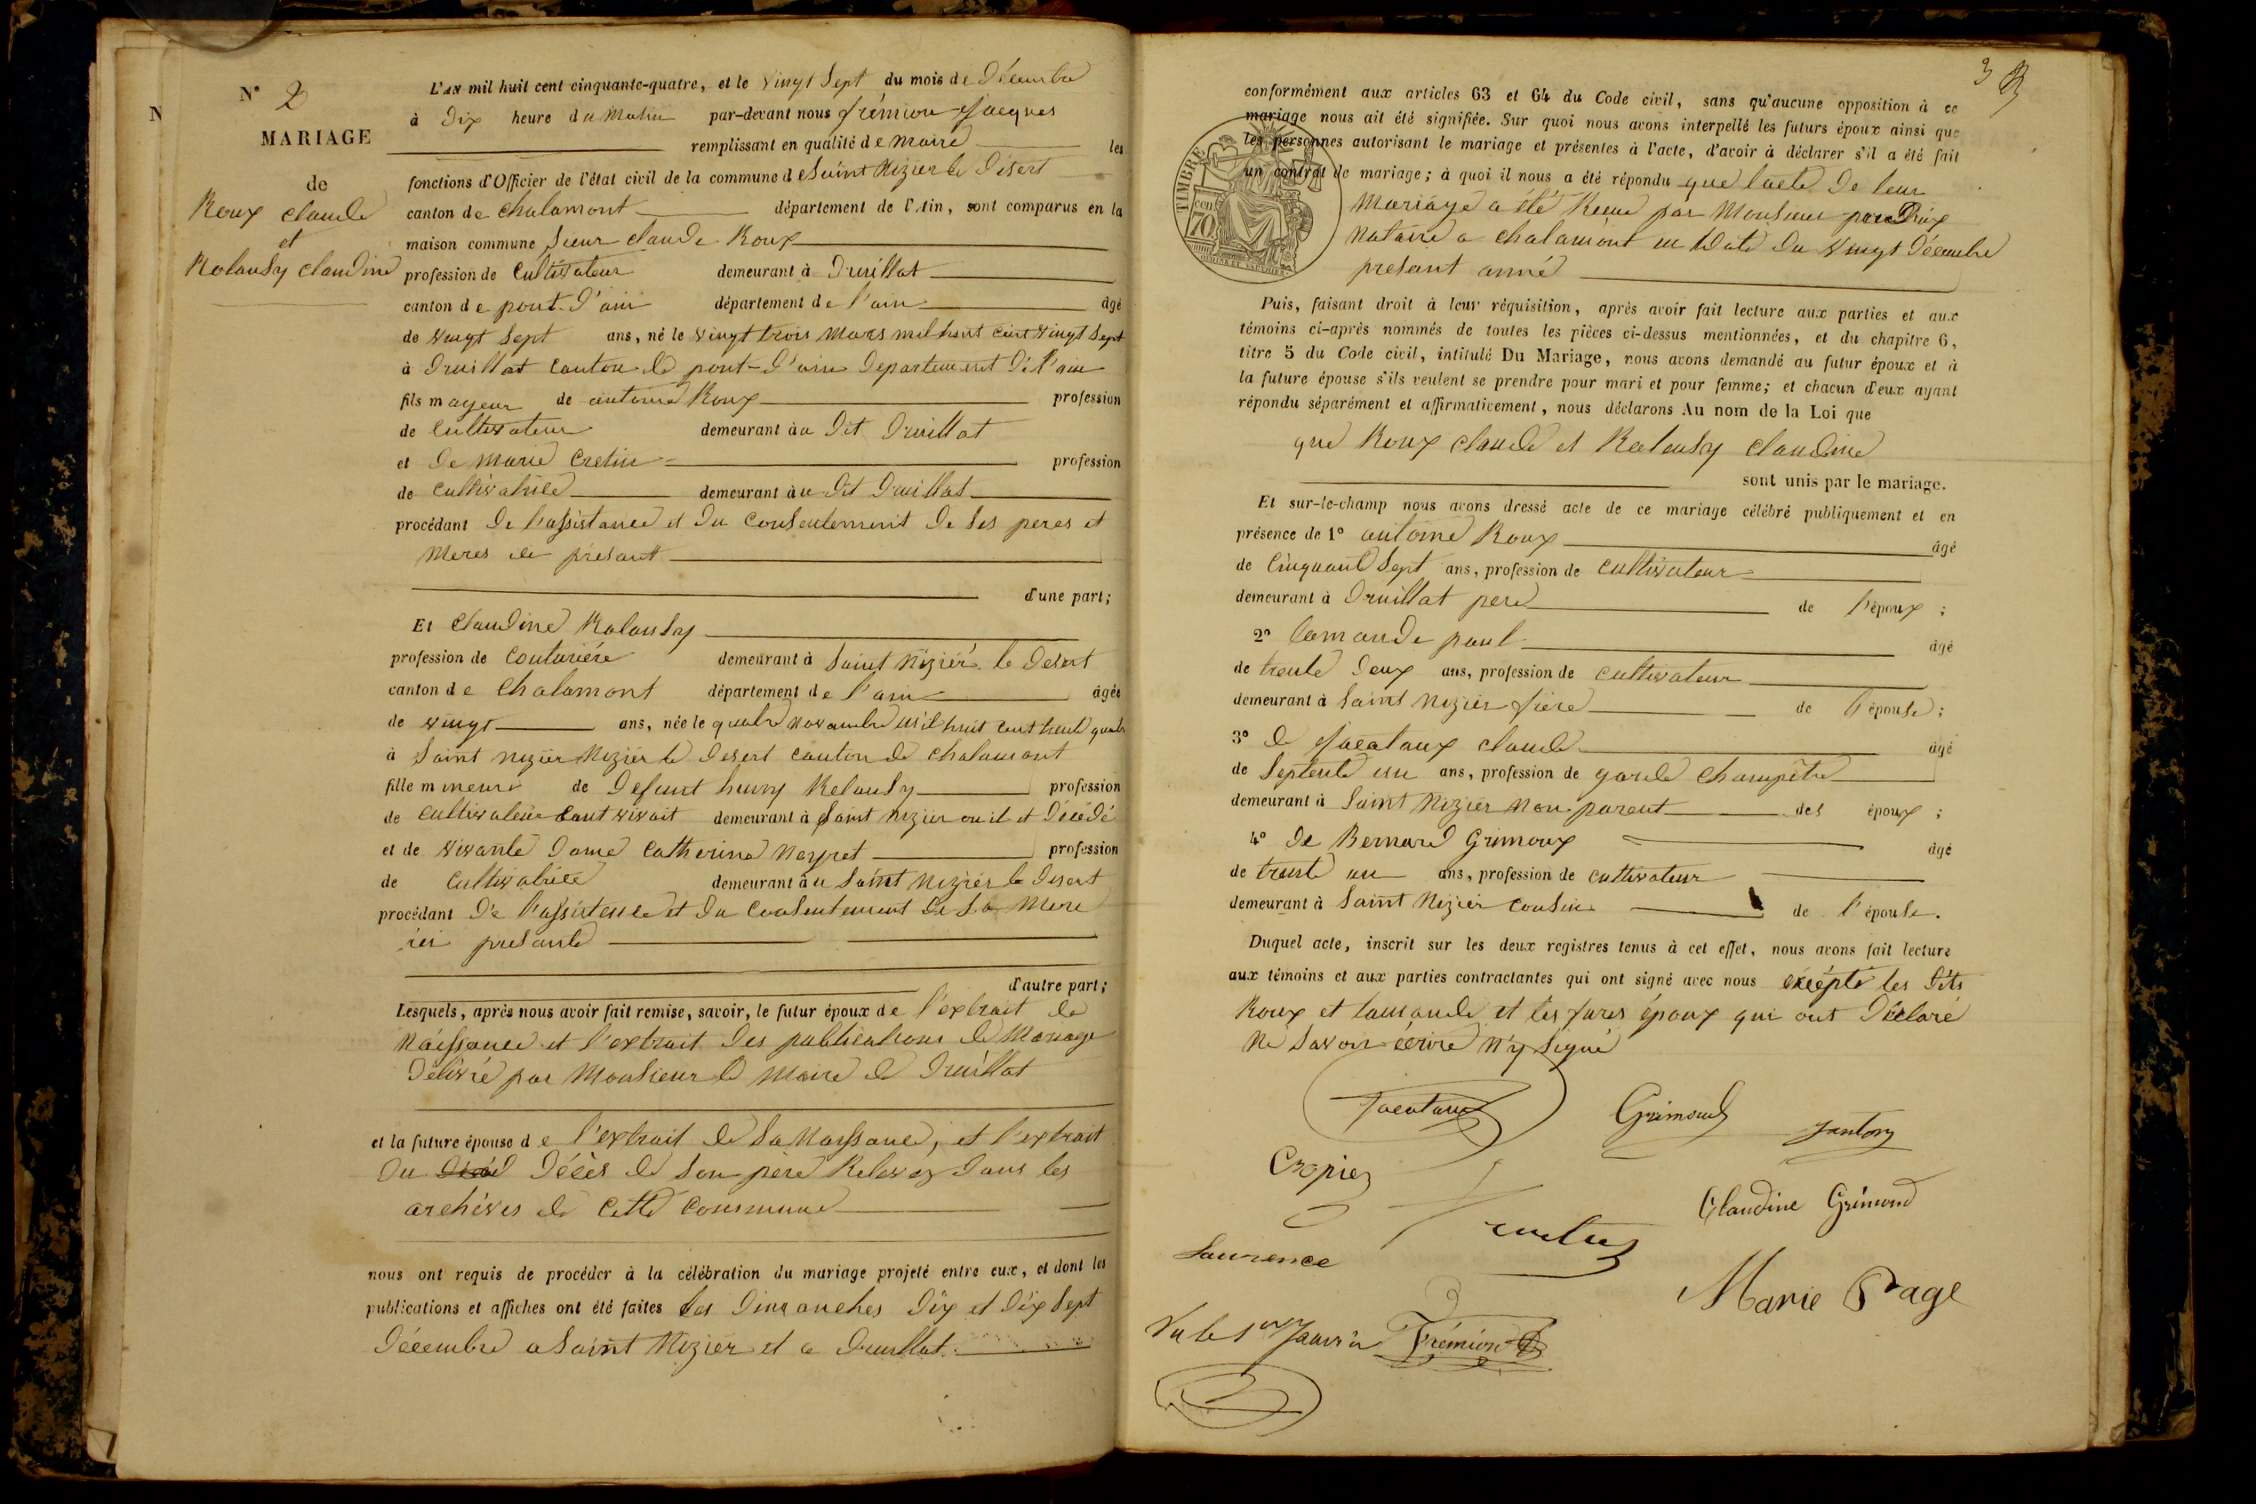 N° 2
MARIAGE
de
Roux claude
et
Rolandy claudine
N
L'AN mil huit cent cinquante-quatre, et le vingt Sept du mois de Décembre
à Dix heure du Matin par-devant nous frémion Jacques
remplissant en qualité de maire les
fonctions d'Officier de l'état civil de la commune de Saint Nizier le Désert
canton de chalamont département de l'Ain, sont comparus en la
maison commune Sieur claude Roux
profession de Cultivateur demeurant à Druillat
canton de pont d'ain département de l'ain âgé
de vingt Sept ans, né le vingt trois Mars mil huit Cent vingt Sept
à Druillat canton de pont-d'ain departement de l'ain
fils mayeur de antoine Roux profession
de Cultivateur demeurant àu dit Druillat
et de Marie Cretin profession
de Cultivatrice demeurant àu dit Druillat
procédant de l'assistance et du Consentement de Ses peres et
Meres ici présant
d'une part;
Et Claudine Rolandy
profession de Couturiére demeurant à Saint Nizier le Desert
canton de Chalamont département de l'ain âgée
de vingt ans, née le quatre Novambre mil huit cent trente quatre
à Saint nizier Nizier le Desert canton de Chalamont
fille mineure de Defunt henry Relandy profession
de Cultivateur vivait demeurant à Saint Nizier ou il et Décédé
et de vivante Dame Catherine Neyret profession
de Cultivatrice demeurant àu Saint Nizier le Desert
procédant De l'assistence et du Consentement de Sa Mere
ici presante
d'autre part;
Lesquels, après nous avoir fait remise, savoir, le futur époux de l'extrait de
Naissance et l'extrait des publications de Mariage
Délivré par Monsieur le Maire de Druillat
et la future épouse de l'extrait de Sa Naissance, et l'extrait
du Décès de Son père Relevez dans les
archives de Cette Commune
nous ont requis de procéder à la célébration du mariage projeté entre eux, et dont les
publications et affiches ont été faites Les Dimanches Dix et Dix Sept
Décembre a Saint Nizier et a Druillat
3
conformément aux articles 63 et 64 du Code civil, sans qu'aucune opposition à ce
mariage nous ait été signifiée. Sur quoi nous avons interpellé les futurs époux ainsi que
les personnes autorisant le mariage et présentes à l'acte, d'avoir à déclarer s'il a été fait
un contrat de mariage; à quoi il nous a été répondu que l'acte de leur
Mariage a été Recue par Monsieur
Notaire a chalamont en Date du vingt Décembre
présant anné
TIMBRE
70
Puis, faisant droit à leur réquisition, après avoir fait lecture aux parties et aux
témoins ci-après nommés de toutes les pièces ci-dessus mentionnées, et du chapitre 6,
titre 5 du Code civil, intitulé Du Mariage, nous avons demandé au futur époux et à
la future épouse s'ils veulent se prendre pour mari et pour femme; et chacun d'eux ayant
répondu séparément et affirmativement, nous déclarons Au nom de la Loi que
que Roux claude et Rolandy claudine
sont unis par le mariage.
Et sur-le-champ nous avons dressé acte de ce mariage célébré publiquement et en
présence de 1° antoine Roux âgé
de Cinquant Sept ans, profession de cultivateur
demeurant à Druillat pere de l'époux;
2° Lamande paul âgé
de trente Deux ans, profession de cultivateur
demeurant à Saint Nizier de l'épouse;
3° de Jacataux claude âgé
de Septente un ans, profession de garde Champêtre
demeurant à Saint Nizier Non parent des époux;
4° de Bernard Grimoux âgé
de trente un ans, profession de cultivateur
demeurant à Saint Nizier cousin de l'épouse.
Duquel acte, inscrit sur les deux registres tenus à cet effet, nous avons fait lecture
aux témoins et aux parties contractantes qui ont signé avec nous excépté les Dits
Roux et Lamande et les furs époux qui ont Déclaré
Ne Savoir écrire N'y Signé
Jacataux
Grimoud
Jantoy
Cropier
Claudine Grimond
Laurence
Marie Page
Vu le 1er Janvier
Frémion